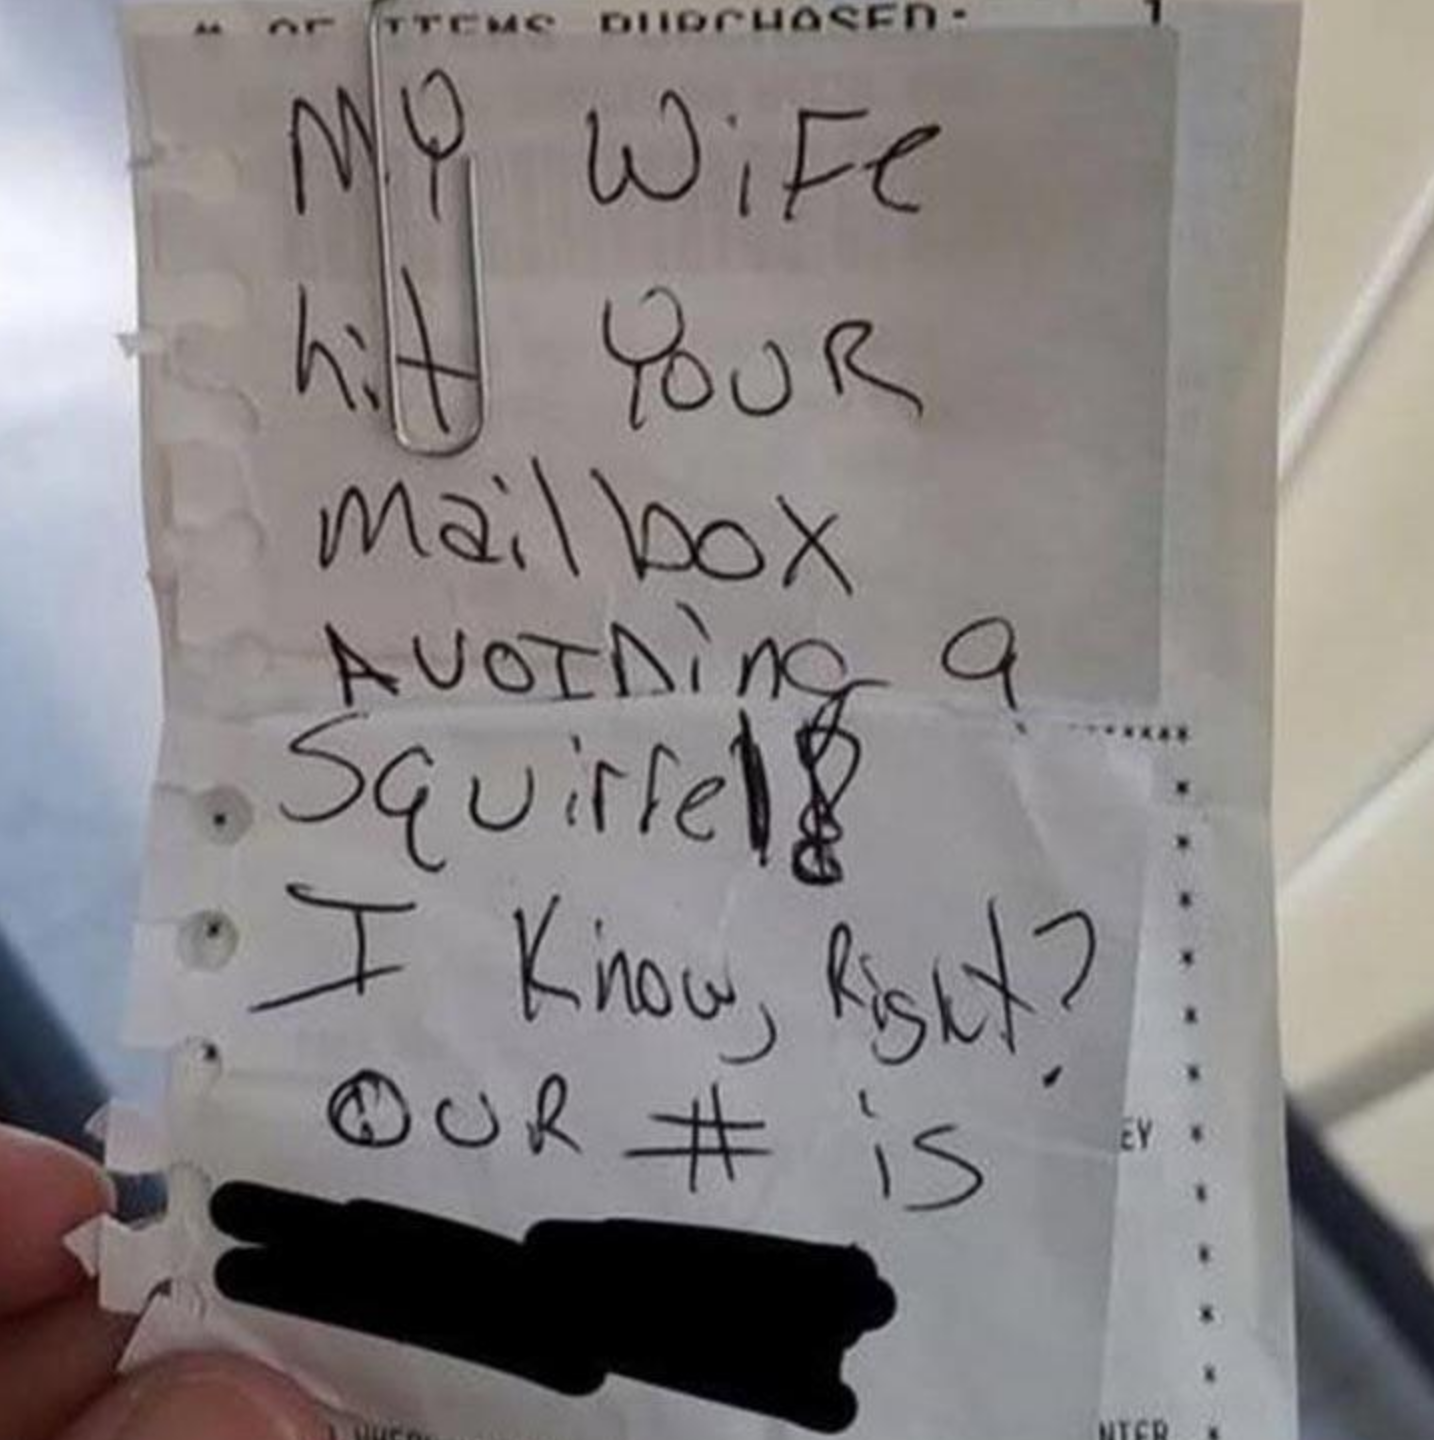 # OF ITEMS PURCHASED: 1
MY WiFe
hit YOUR
Mailbox
AVOIDing a
Squirrel
I Know, Right?
OUR # is
EY
NTER